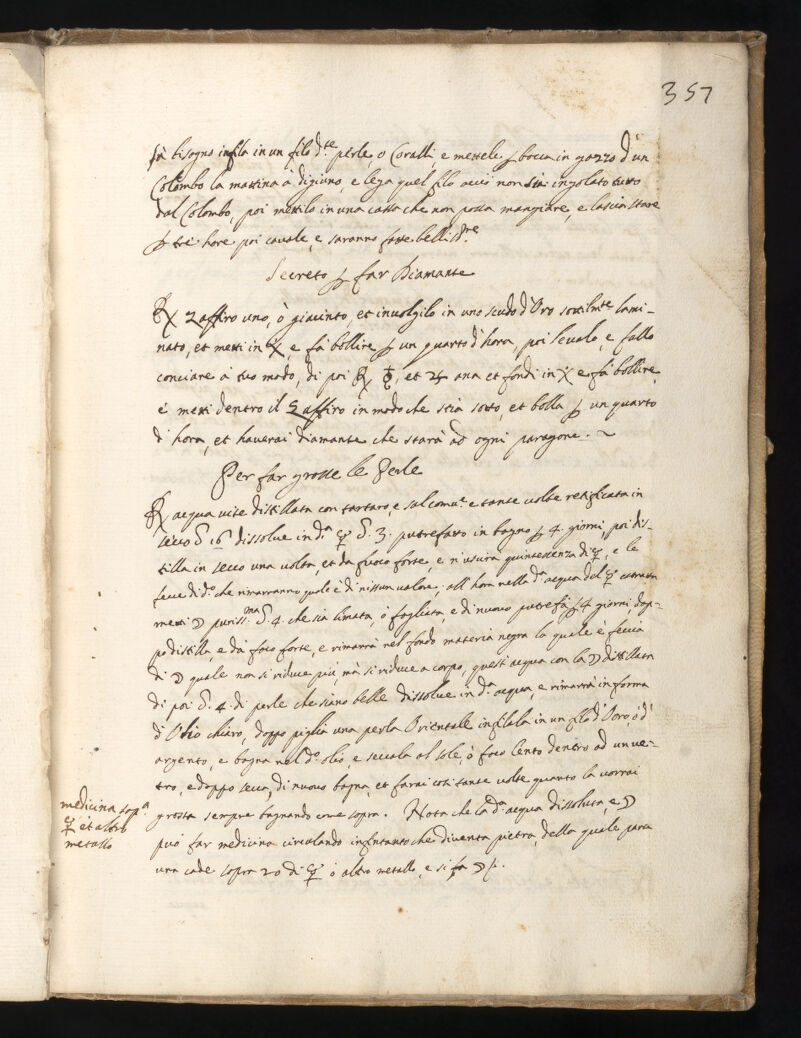 357
fà bisogno infila in un filo d.te perle, o Coralli, e mettele p bocca in gozzo d'un
Colombo la mattina à digiuno, e lega quel filo acciò non sia ingolato tutto
dal Colombo, poi mettilo in una cassa che non possa mangiare, e lascia stare
p tre hore poi cavale, e saranno fatte bellis.re
Secreto p far Diamante
℞ Zaffiro uno, ò giacinto, et involgilo in uno scudo d'Oro sottilm.te lami-
nato, et metti in , e fà bollire p un quarto d'hora, poi levalo, e fallo
conciare à tuo modo, di poi ℞ ♁, et ♃ ana et fondi in e fà bollire,
e metti dentro il Zaffiro in modo che stia sotto, et bolla p un quarto
d'hora, et haverai diamante che starà ad ogni paragone. ~
Per far grosse le Perle
℞ acqua vite distillata con tartaro, e sal comu.e e tante volte retificata in
secco 16 dissolve in d.a ☿ 3. putrefatto in bagno p 4. giorni, poi dis-
tilla in secco una volta, et dà fuoco forte, e n'usirà quintessenza di ☿, e le
fecce di d.o che rimarranno quale è di nissun valore, all'hora nella d.a acqua del ☿ estratta
metti ☽ puriss.ma 4. che sia limata, ò fogliata, e di nuovo putrefà p 4 giorni, dop-
po distilla e dà foco forte, e rimarrà nel fondo materia negra la quale è feccia
di ☽ quale non si riduce più, mà si riduce a corpo, quest'acqua con la ☽ distillata
di poi 4. di perle che siano belle dissolve in d.a acqua, e rimarrà in forma
d'Olio chiaro, doppo piglia una perla Orientale infilala in un filo d'Oro, ò d'
argento, e bagna nel d.o olio, e seccala al sole, ò foco lento dentro ad un ve-
tro, e doppo secca, di nuovo bagna, et farai così tante volte quanto la vorrai
grossa sempre bagnando come sopra. Nota che la d.a acqua dissoluta, e ☽
può far medicina circulando infintanto che diventa pietra, della quale parte
una cade sopra 20 di ☿ ò altro metallo, e si fa ☽
medicina sop.a
☿ et altro
metallo